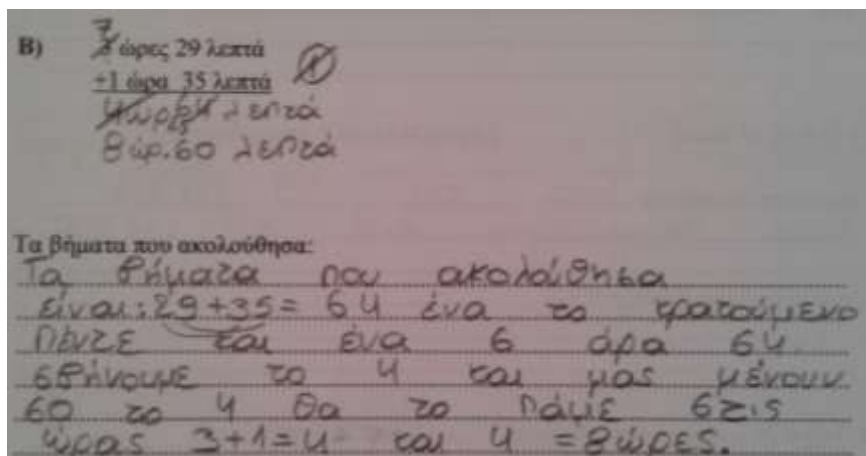 7
Β) 3 ώρες 29 λεπτά
+1 ώρα 35 λεπτά
4ώρες 64 λεπτά
8ώρ.60 λεπτά
Τα βήματα που ακολούθησα:
Τα βήματα που ακολούθησα
είναι: 29+35= 64 ένα το κρατούμενο
πέντε και ένα 6 άρα 64
σβήνουμε το 4 και μας μένουν
60 το 4 θα το πάμε στις
ώρας 3+1=4 και 4 =8ώρες.